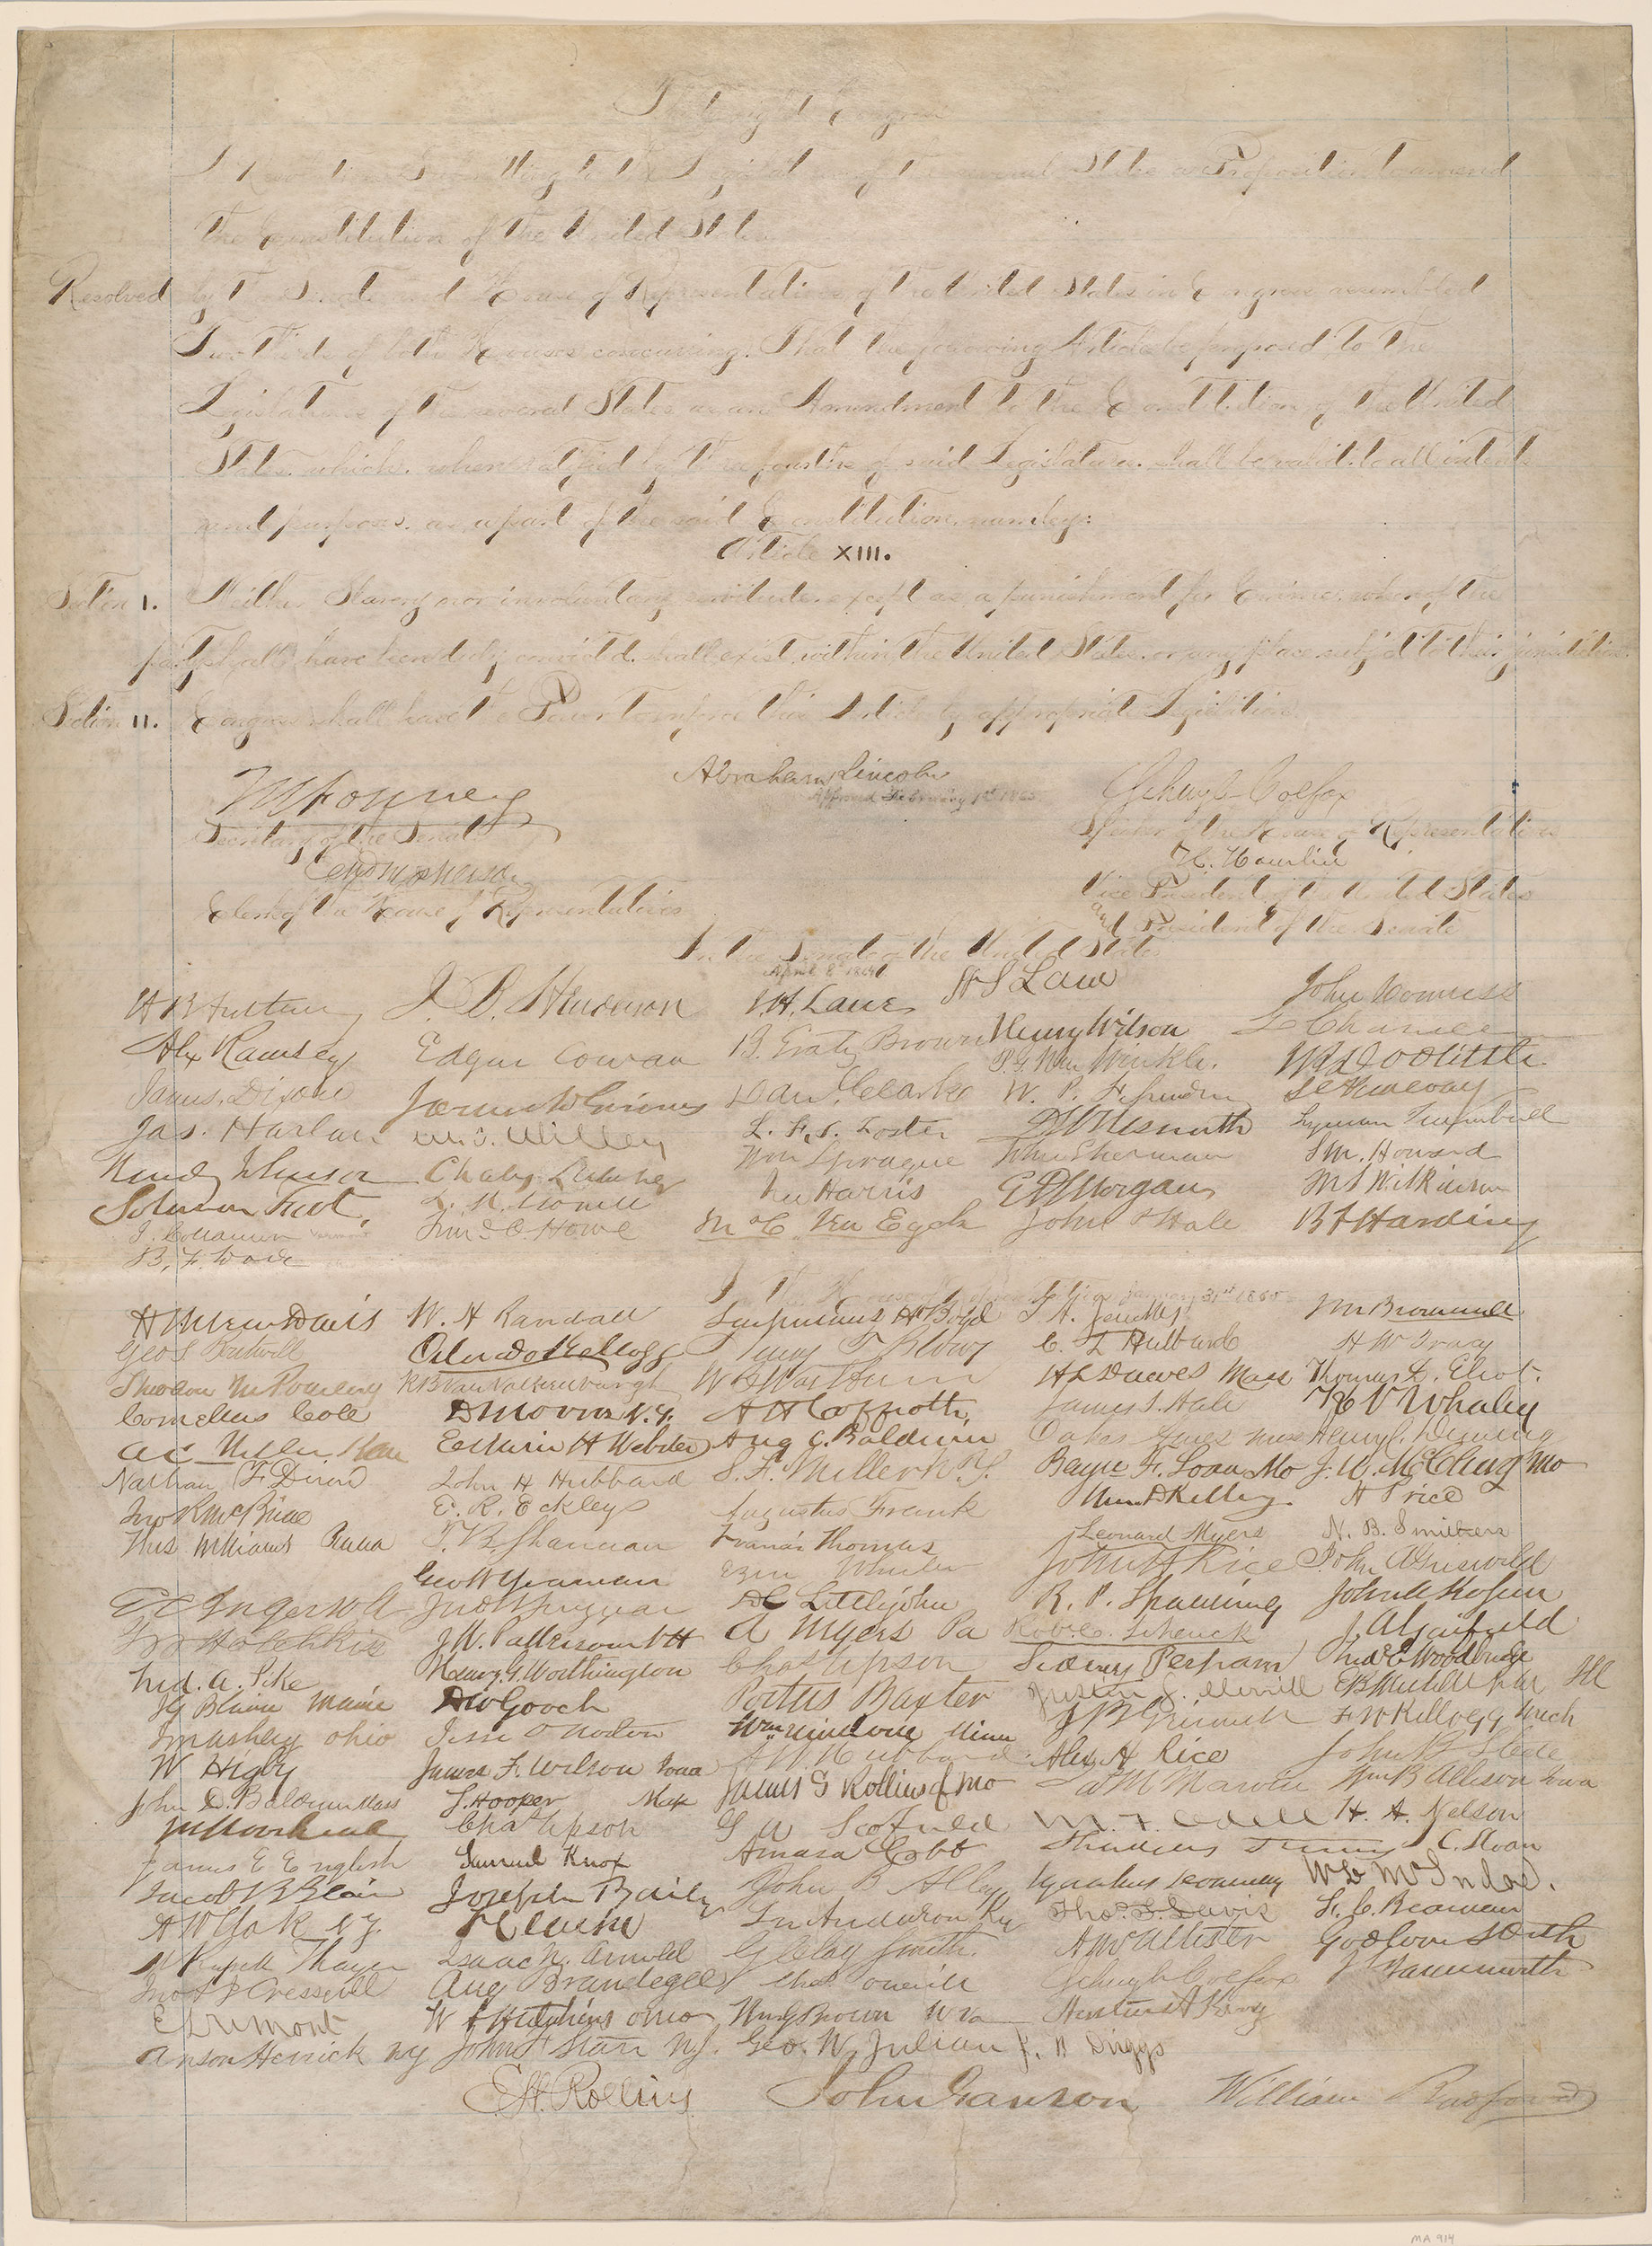 Thirty Eight Congress
A Resolution Submitting to the Legislatures of the several States a Proposition to amend
the Constitution of the United States.
Resolved by the Senate and House of Representatives of the United States in Congress assembled
Two thirds of both Houses concurring. That the following Article be proposed to the
Legislatures of the several States as an Amendment to the Constitution of the United
States. which. when ratified by three fourths of said Legislatures. shall be valid. to all intents
and purposes. as a part of the said Constitution. namely:
Article XIII.
Section I. Neither Slavery nor involuntary servitude. except as a punishment for Crime. whereof the
party shall have been duly convicted. shall exist within the United States. or any place subject to their jurisdiction.
Section II. Congress shall have the Power to enforce this Article by appropriate Legislation.
Abraham Lincoln
Approved February 1st 1865.
JW Forney
Secretary of the Senate
Schuyler Colfax
Speaker of the House of Representatives
EdwdMcPherson
Clerk of the House of Representatives
H. Hamlin
Vice President of the United States
and President of the Senate
In the Senate of the United States
April 8th 1864
J. B. Henderson J.H. Lane H S Lane John Conness
B. Gratz Brown Henry Wilson
Alex Ramsey Edgar Cowan P.G. Van Winkle. J R Doolittle
James Dixon James W Grimes Dan. Clark W. P. Fessenden S C Pomeroy
Jas. Harlan W. T. Willey L. F. S. Foster J W Nesmith Lyman Trumbull
Reverdy Johnson Charles Sumner Wm Sprague John Sherman J M. Howard
Solomon Foot, L. M. Morrill Ira Harris E D Morgan M S Wilkinson
J. Collamer Vermont Tim. O. Howe John P Hale B F Harding
B. F. Wade
In the House of Representatives January 31st 1865
H Winter Davis W. H Randall Sempronius H Boyd T. A. Jenckes
Geo S Boutwell Orlando Kellogg Henry T Blow C. T. Hulburd H W Tracy
Theodore M Pomeroy R B Van Valkenburgh H L Dawes Mass Thomas D. Eliot.
Cornelius Cole D Morris N.Y. A H Coffroth, K V Whaley
Edwin H Webster Aug C. Baldwin Oakes Ames Mass Henry C. Deming
Nathan F. Dixon John H Hubbard S. F. Miller N.Y. Benj. F. Loan Mo J. W. McClurg Mo
Jno R McBride E. R. Eckley Augustus Frank Wm D Kelley. H Price
T. B. Shannon Francis Thomas Leonard Myers N. B. Smithers
Geo H Yeaman Ezra Wheeler John H Rice John A Griswold
E C Ingersoll D C Littlejohn R. P. Spalding John A Kasson
J.W. Patterson NH A Myers Pa Robt. C. Schenck J. A Garfield
Fred. A. Pike Henry G Worthington Chas Upson Sidney Perham Fred. E Woodbridge
J G Blaine Maine D W Gooch Portus Baxter Justin S. Morrill
J M Ashley Ohio Jesse O Norton Wm Windom Minn F W Kellogg Mich
W Higby James F. Wilson Iowa Alex H Rice John B Steele
John D. Baldwin Mass S. Hooper Mass James S Rollins of Mo Wm B Allison Iowa
Chas Upson G W Scofield M. F. Odell H. A. Nelson
James E English Samuel Knox Amasa Cobb Thaddeus Stevens A C. Sloan
Jacob B Blair Joseph Baily John B Alley W D McIndoe.
L. Anderson Ky Tho. T. Davis F. C. Beaman
M Russell Thayer Isaac N. Arnold G Clay Smith. A McAllister Godlove S Orth
Jno A J Creswell Aug Brandegee Chas O'Neill Schuyler Colfax J F Farnsworth
W A Hutchins Ohio Wm G Brown W Va
Anson Herrick NY John F Starr N.J. Geo. W. Julian J. F Driggs
E. H. Rollins John Ganson William Radford
MA 914